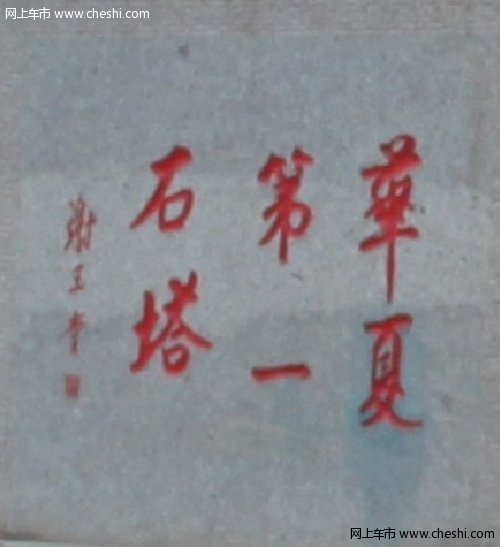 网上车市 www.cheshi.com
華夏
第一
石塔
网上车市 www.cheshi.com